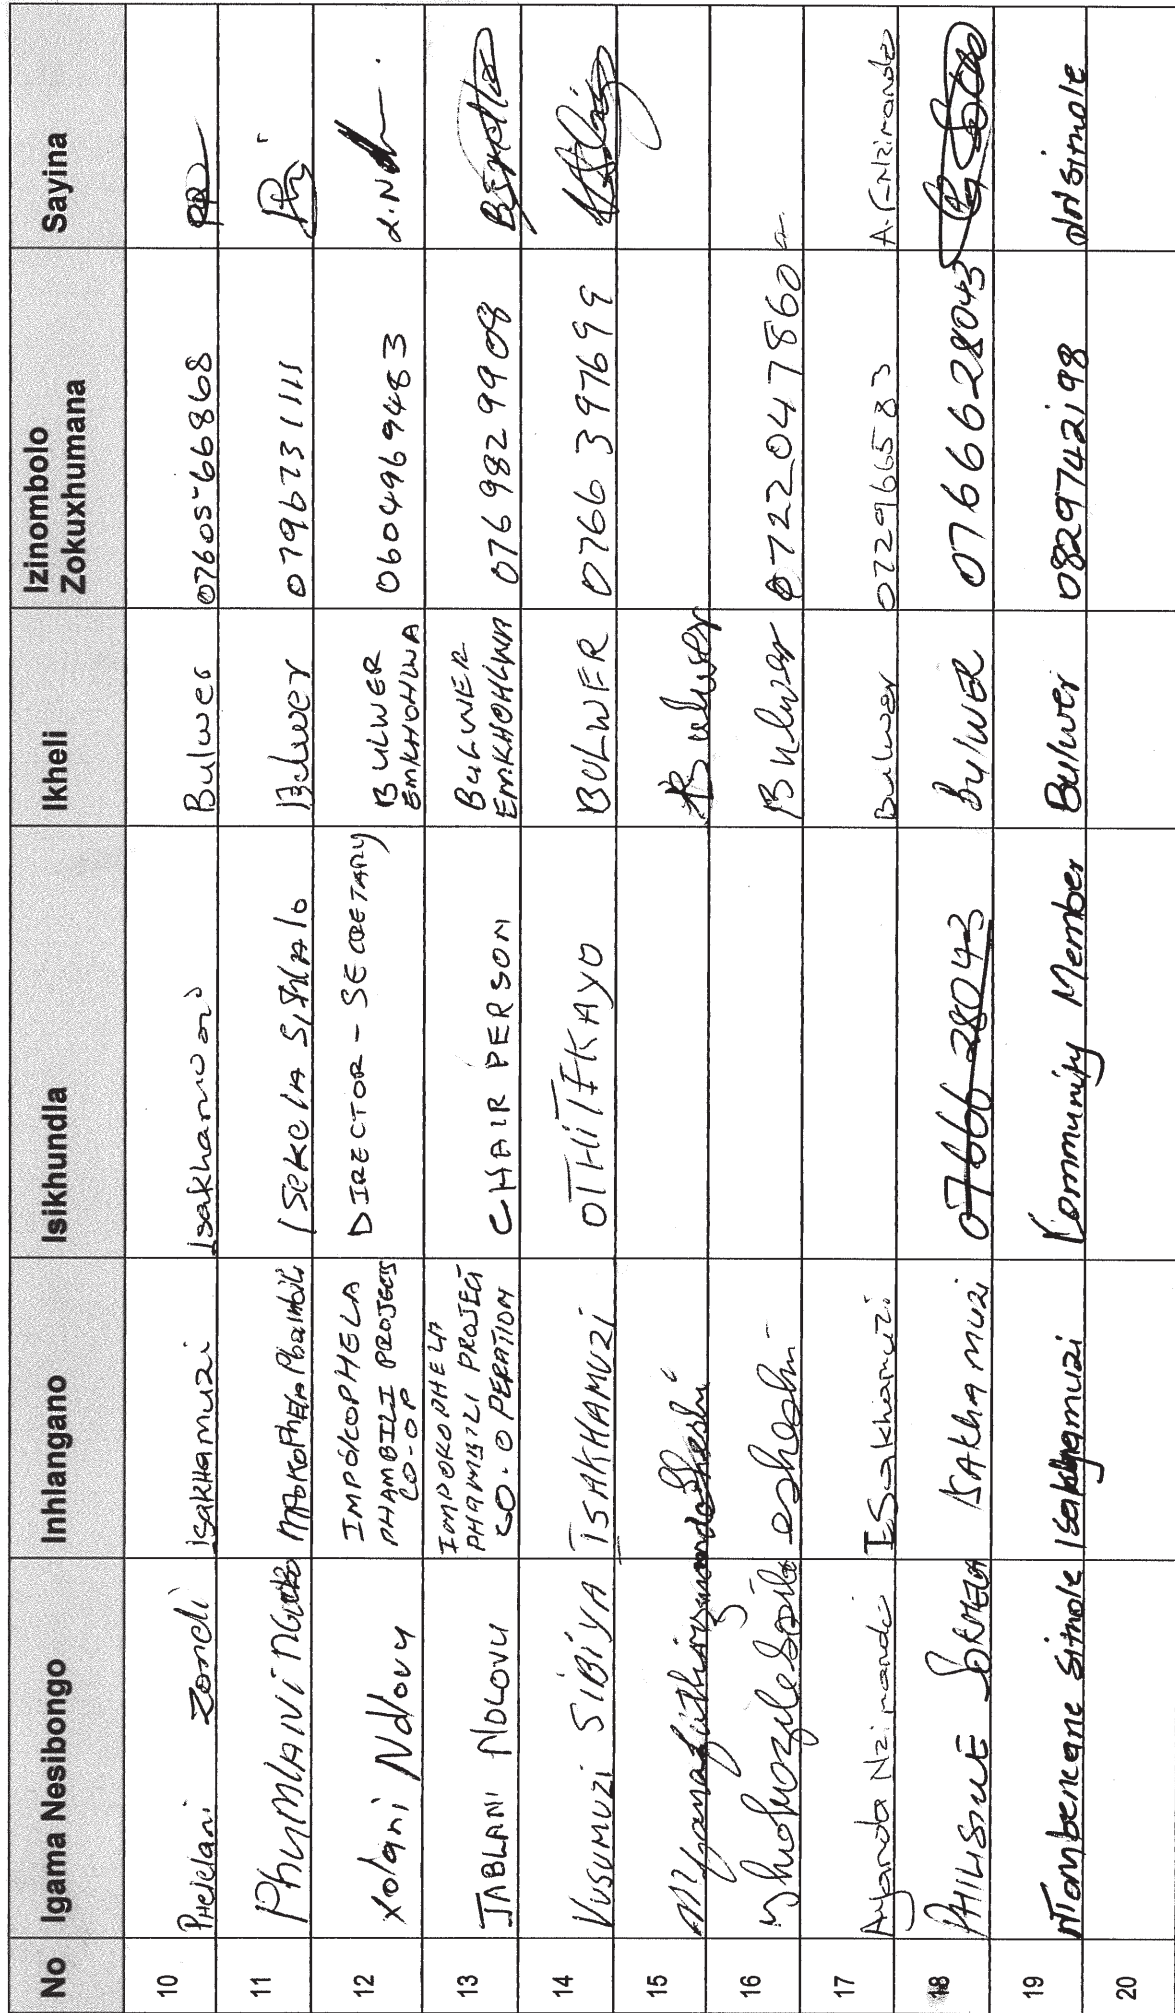 No Igama Nesibongo Inhlangano Isikhundla Ikheli Izinombolo Zokuxhumana Sayina
10 Phelelani Zondi Isakhamuzi Isakhamuzi Bulwer 0760566868
11 Phumlani Ngubo Mpokophela Phambili Isekela Sihlalo Bulwer 0796731111
12 Xolani Ndlovu IMPOKOPHELA PHAMBILI PROJECTS CO-OP DIRECTOR - SECRETARY BULWER EMKHOHLWA 0604969483
13 JABLANI NDLOVU IMPOKOPHELA PHAMBILI PROJECT CO.OPERATION CHAIR PERSON BULWER EMKHOHLWA 0769829908
14 VUSUMUZI SIBIYA ISAKHAMUZI OTHITEKAYO BULWER 0766397699
15 Bulwer
16 esheshi Bulwer 0722047860
17 Ayanda Nzimande ISakhamuzi Bulwer 0729665583 A.F Nzimande
18 PHILISIWE ISAKHAMUZI 0766628043 bulwer 0766628043
19 Ntombencane Sithole Isakhamuzi Community Member Bulwer 0829742198 sithole
20